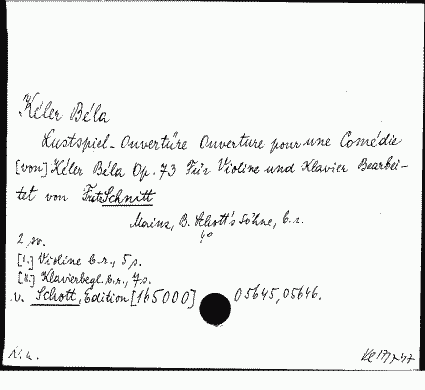 Kéler Béla
Lustspiel-Ouvertüre Ouverture pour une Comédie
[von] Kéler Béla Op. 73 Für Violine und Klavier Bearbei-
tet von Fritz Schnitt
Mainz, B. Schott's Söhne, é.n.
4°
2 sv.
[I.] Violine é.n., 5 s.
[II.] Klavierbegl. é.n., 7 s.
v. Schott, Edition [165000] 05645, 05646.
N.k.